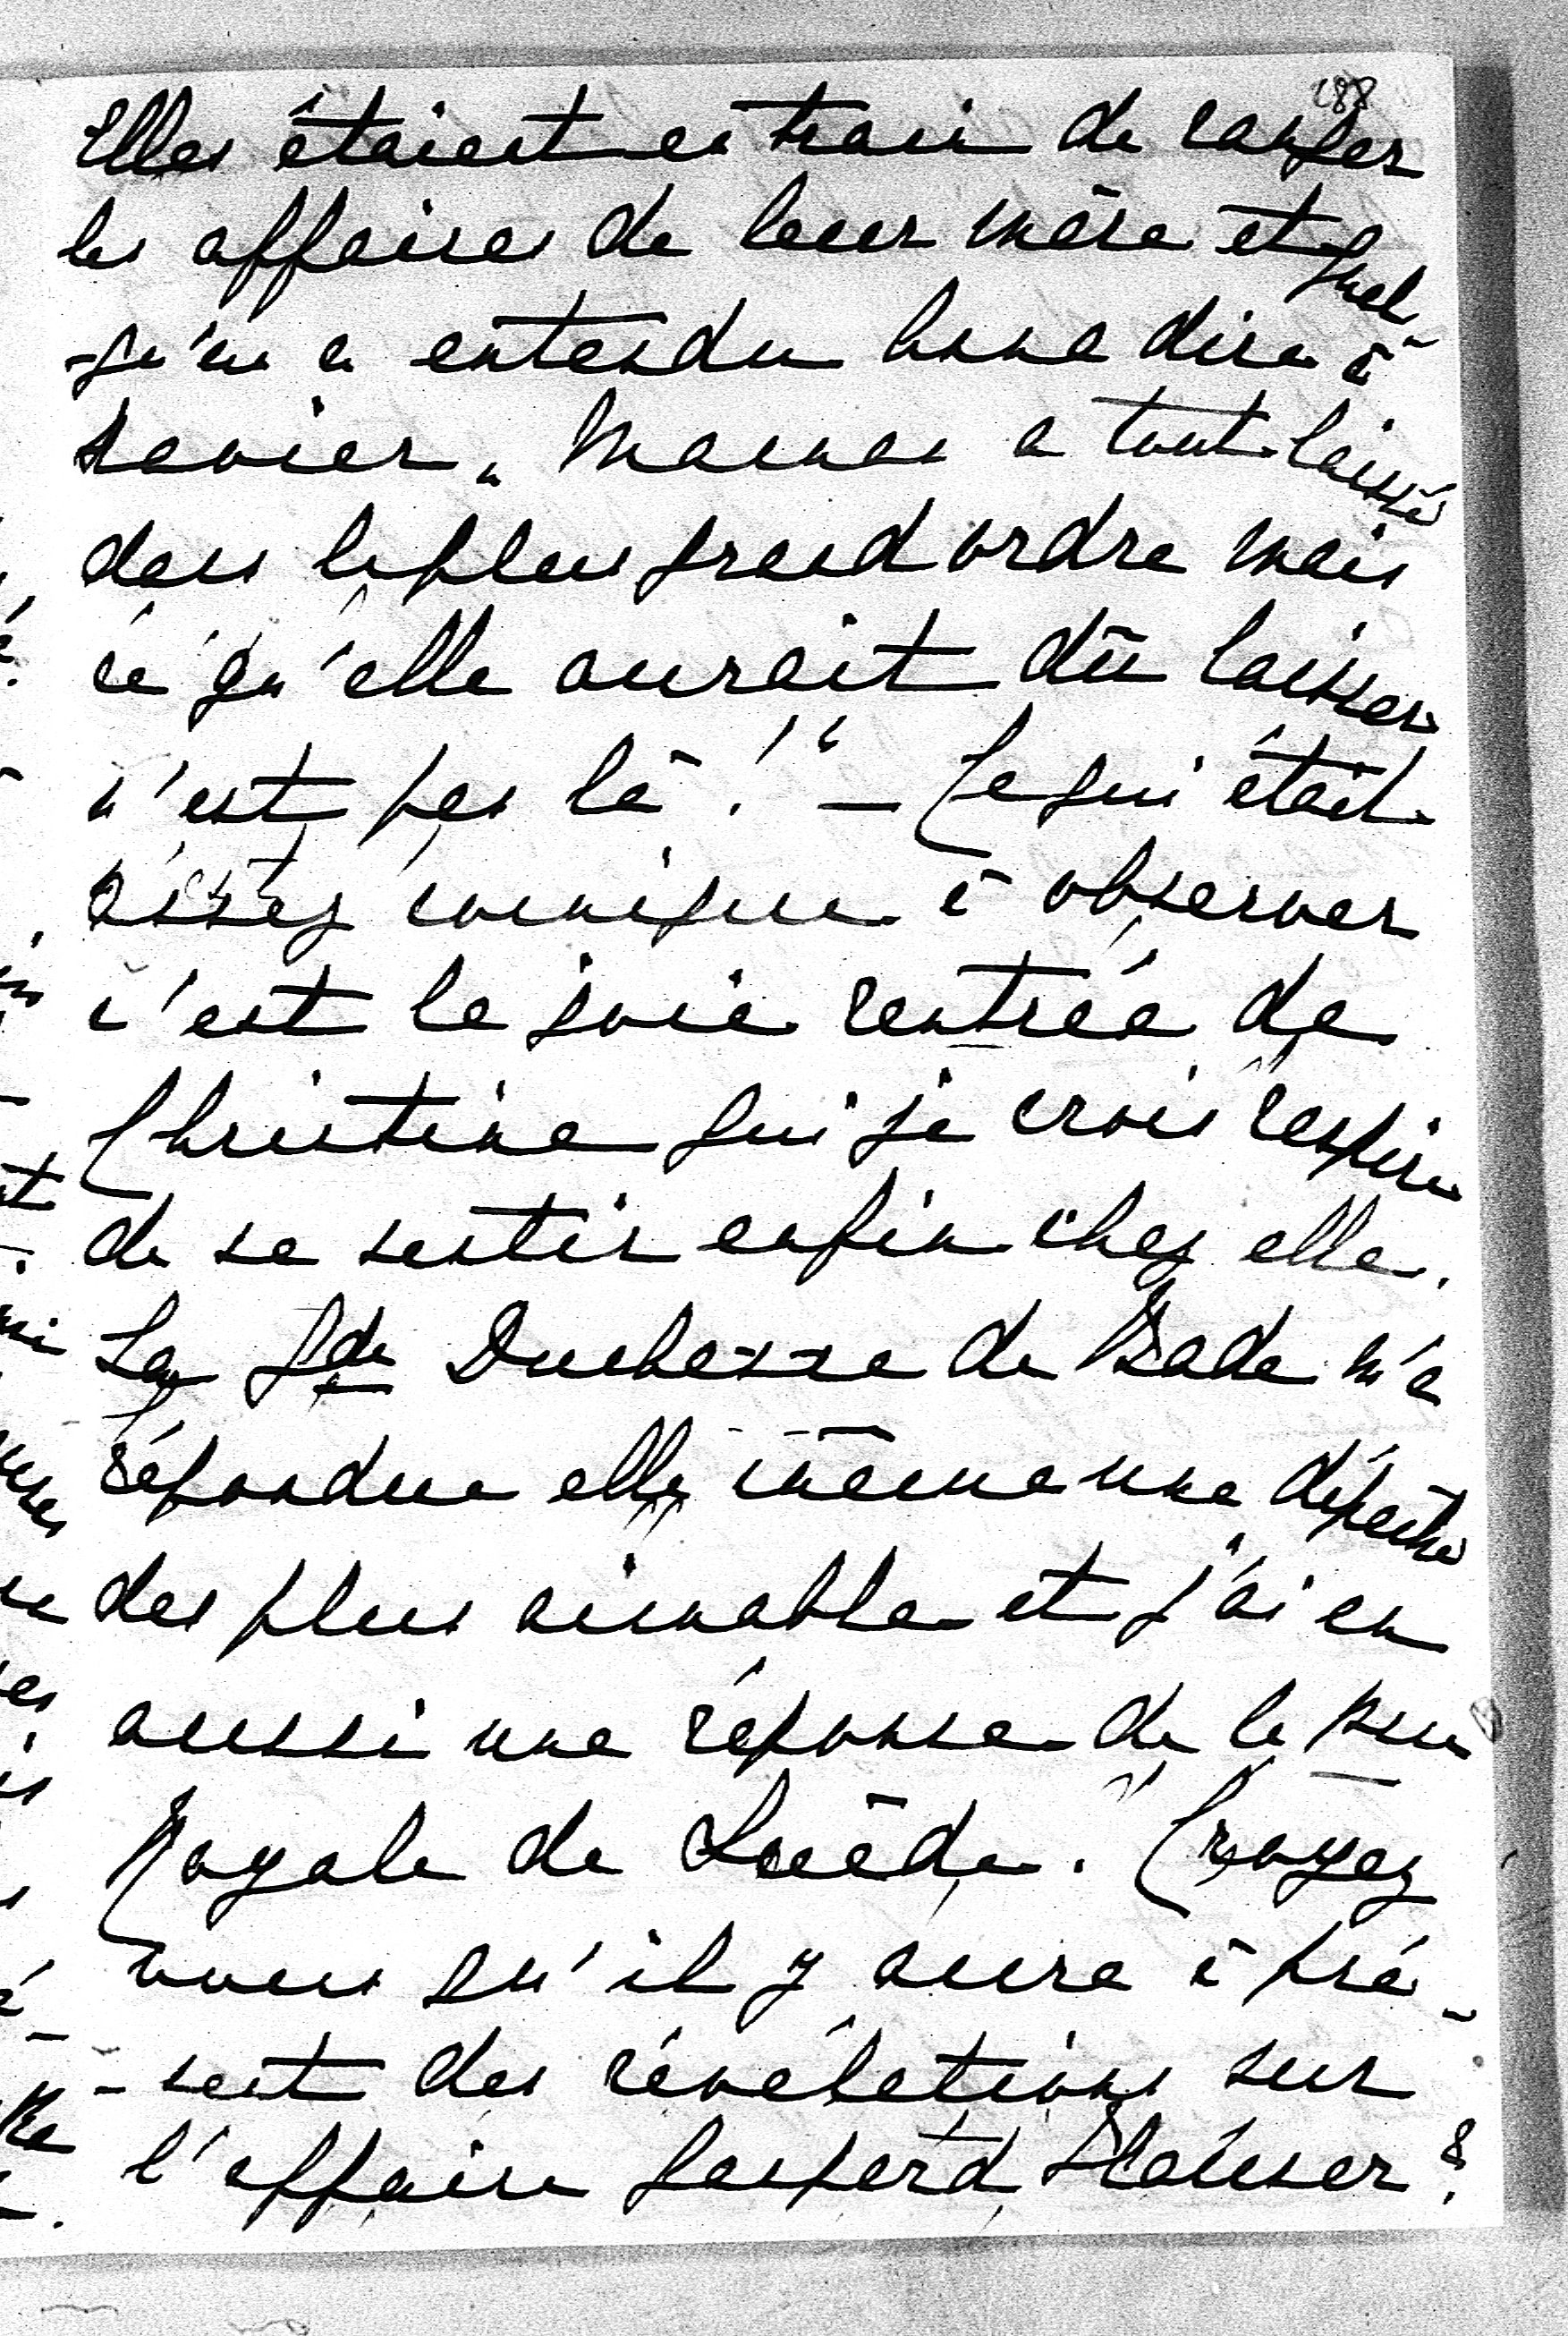 188
Elles étaient en train de ranger
les affaires de leur mère et quel-
-qu'un a entendu Anna dire à
Xavier „ Maman a tout laissé
dans le plus grand ordre mais
ce qu'elle aurait dû laisser
n'est pas là !“ — Ce qui était
assez comique à observer
c'est la joie rentrée de
Christine qui je crois respire
de se sentir enfin chez elle.
La Gde Duchesse de Bade m'a
répondue elle même une dépêche
des plus aimable et j'ai eu
aussi une réponse de la Pcesse
Royale de Suède. Croyez
vous qu'il y aura à pré-
-sent des révélations sur
l'affaire Gaspard Hauser ?